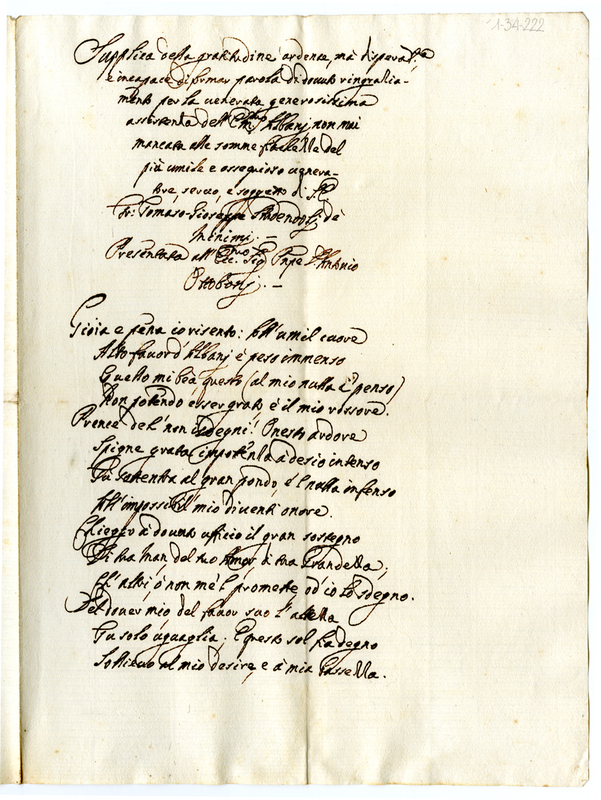 1-34-222
Supplica della gratitudine ardente, mà disperata
e incapace di formar parola di douuto ringratia-
mento per la uenerata generosissima
assistenza dell' Albani non mai
mancata alle somme fiachezze del
più umile e ossequioso uenera-
tore, seruo, e soggetto di
Fr: Tomaso Gioseppe de
Minimi. —
Presentata all' Ecc: Sig Pnpe D'Antonio
Ottoboni. —
Gioia e pena io risento: All' umil cuore
Alto fauor d'Albani è peso immenso
Questo mi bea, questo (al mio nulla penso)
Non potendo esser grato, è il mio rossore.
Prence deh! non isdegni! Onesto ardore
Spigne grata impotenza à desio intenso
Tù sottentra al gran pondo, e 'l nulla infenso
All' impossibil mio diuenti onore.
Elleggo à douuto ufficio il gran sostegno
Di tua man, del tuo Amor, à tua Grandezza;
Ch' altri ò non mè 'l promette, od io lo sdegno.
Del douer mio del fauor suo l' altezza
Tu solo uguaglia: E questo sol fia degno
Sollieuo al mio desire, e à mia bassezza.